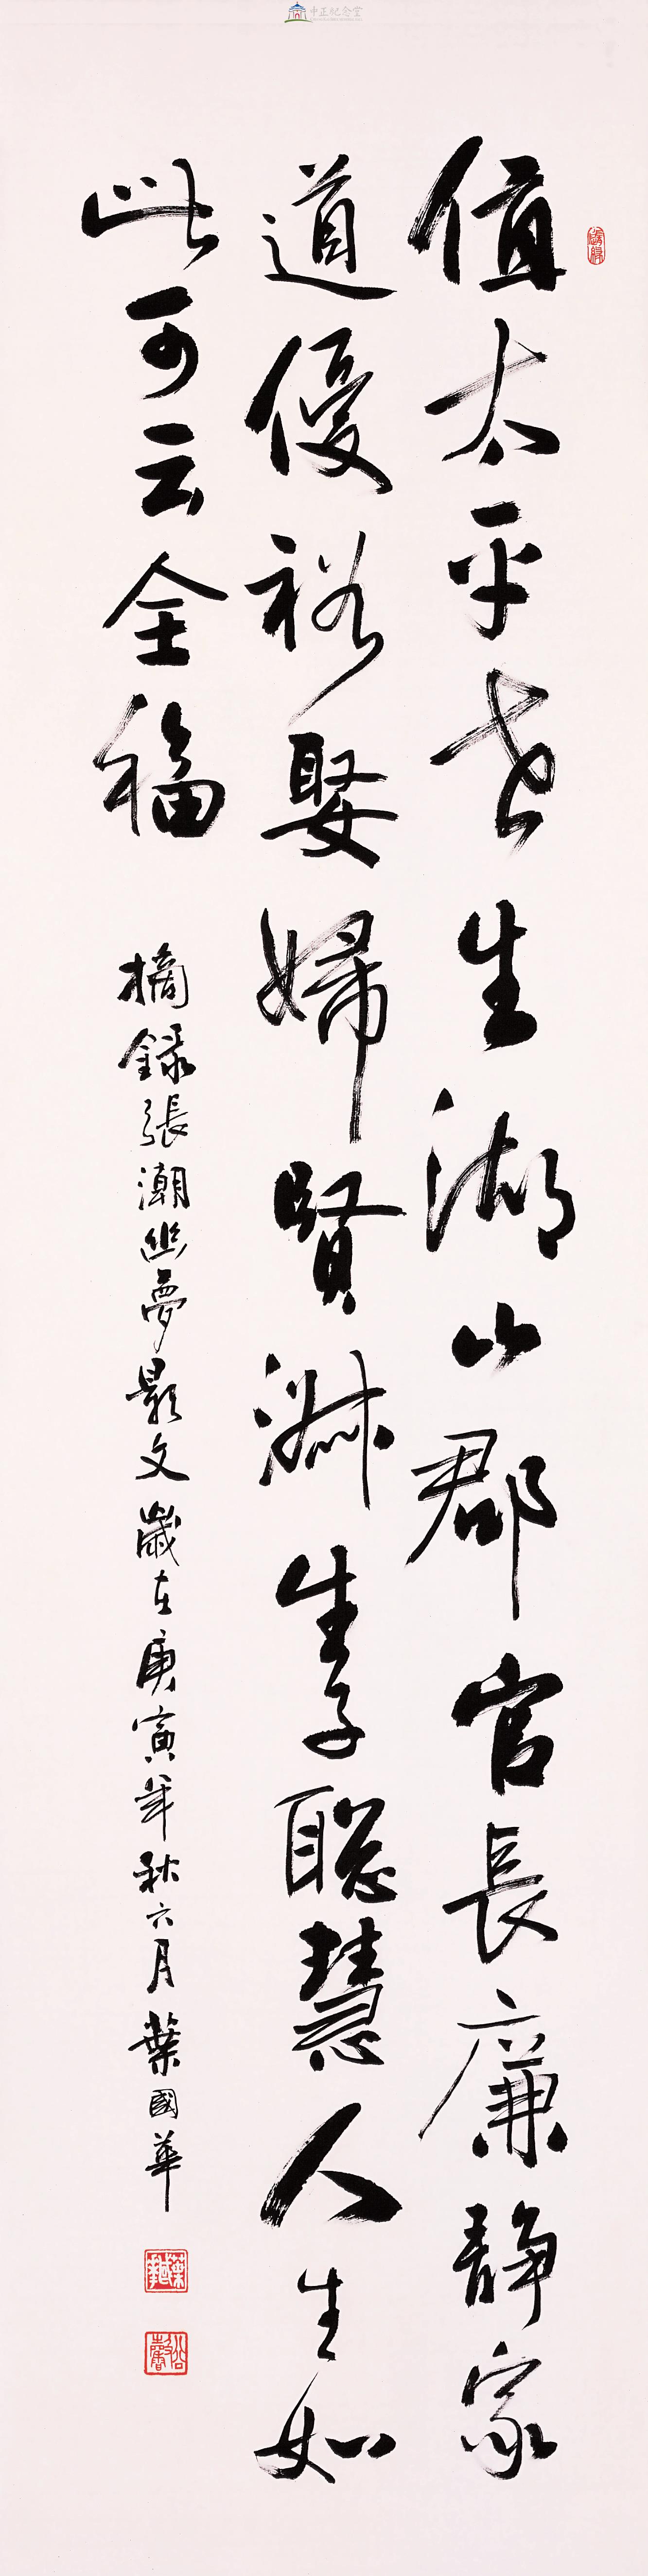 中正紀念堂
值太平世生湖山郡官長廉靜家
道優裕娶婦賢淑生子聰慧人生如
此可云全福 摘錄張潮幽夢影文 歲在庚寅年秋六月 葉國華